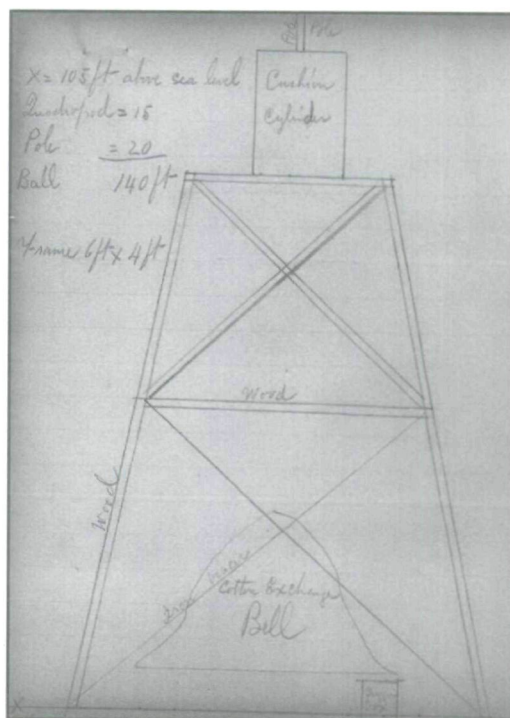 Pole
Pole
X = 105 ft above sea level
Quadropod = 15
Pole = 20
Ball 140 ft
Frame 6 ft x 4 ft
Cushion
Cylinder
Wood
Wood
Iron braces
Cotton Exchange
Bell
X